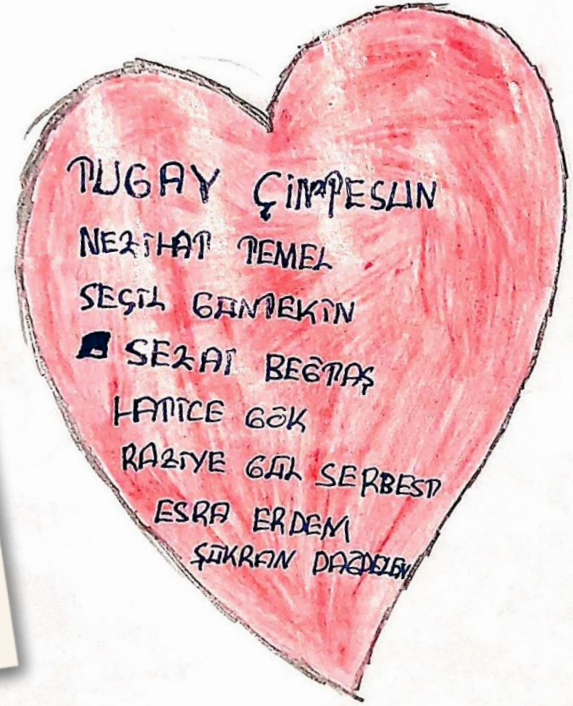 TUGAY ÇİMTESUN
NEZİHAT TEMEL
SEÇİL GÜNTEKİN
SEZAİ BEĞTAŞ
HATİCE GÖK
RAZİYE GÜL SERBEST
ESRA ERDEM
ŞÜKRAN DAĞDELEN